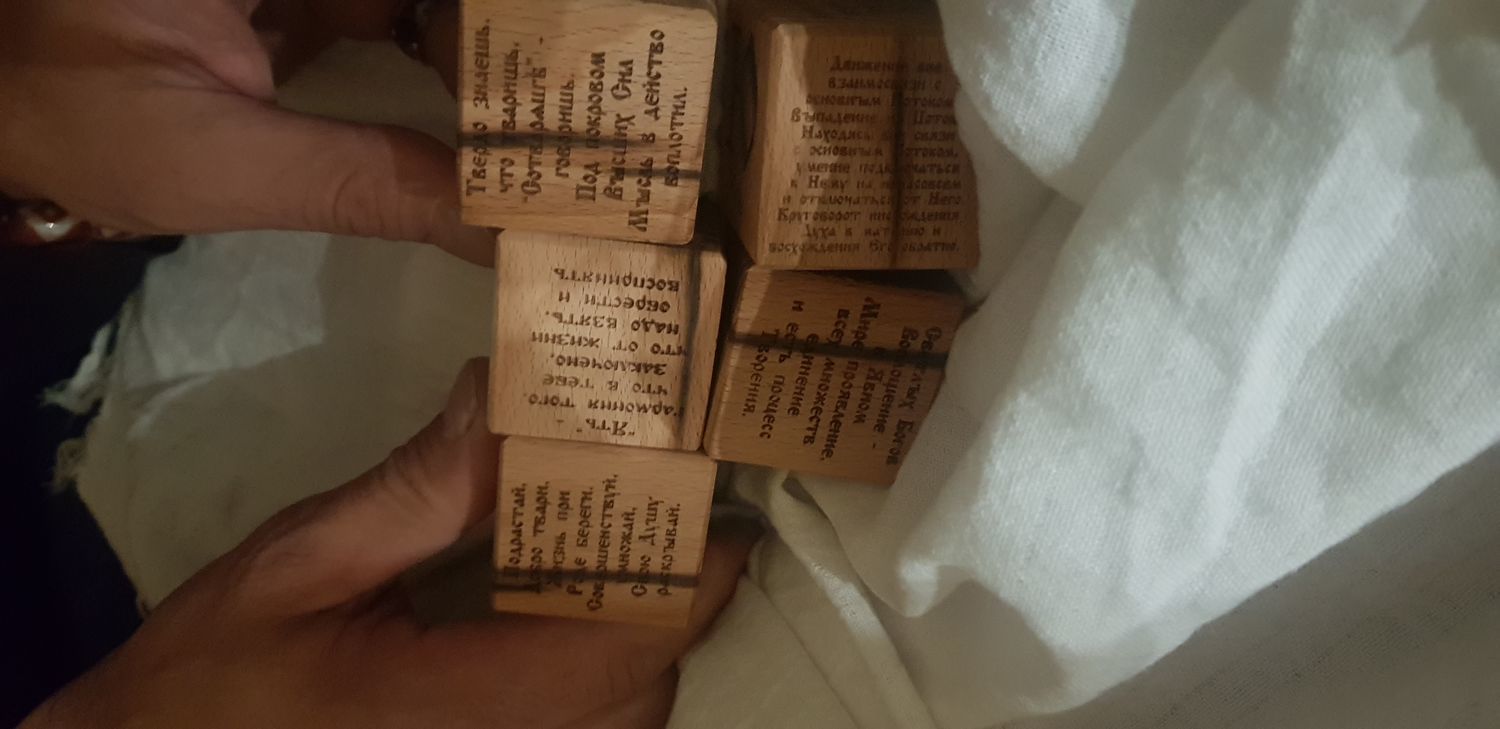 Твердо знаешь,
что творишь,
"Сотвераше" -
говоришь.
Под покровом
Высших Сил
Мысль в действо
воплотил.
Движение вне
взаимосвязи с
основным Потоком.
Выпадение из Потока.
Находясь вне связи
с основным Потоком,
умение подключаться
к Нему на
и отключаться от Него.
Круговорот нисхождения
Духа в материю и
восхождения Его обратно.
"Ять" -
гармония того,
что в тебе
заключено,
что от жизни
надо взять,
обрести и
воспринять
Светлых Богов
Воплощение -
в Явном
Мире проявление,
всех множеств
единение
и есть процесс
Творения.
Подрастай,
добро твари,
Жизнь при
Роде береги.
Совершенствуй,
умножай,
Свою Душу
раскрывай.